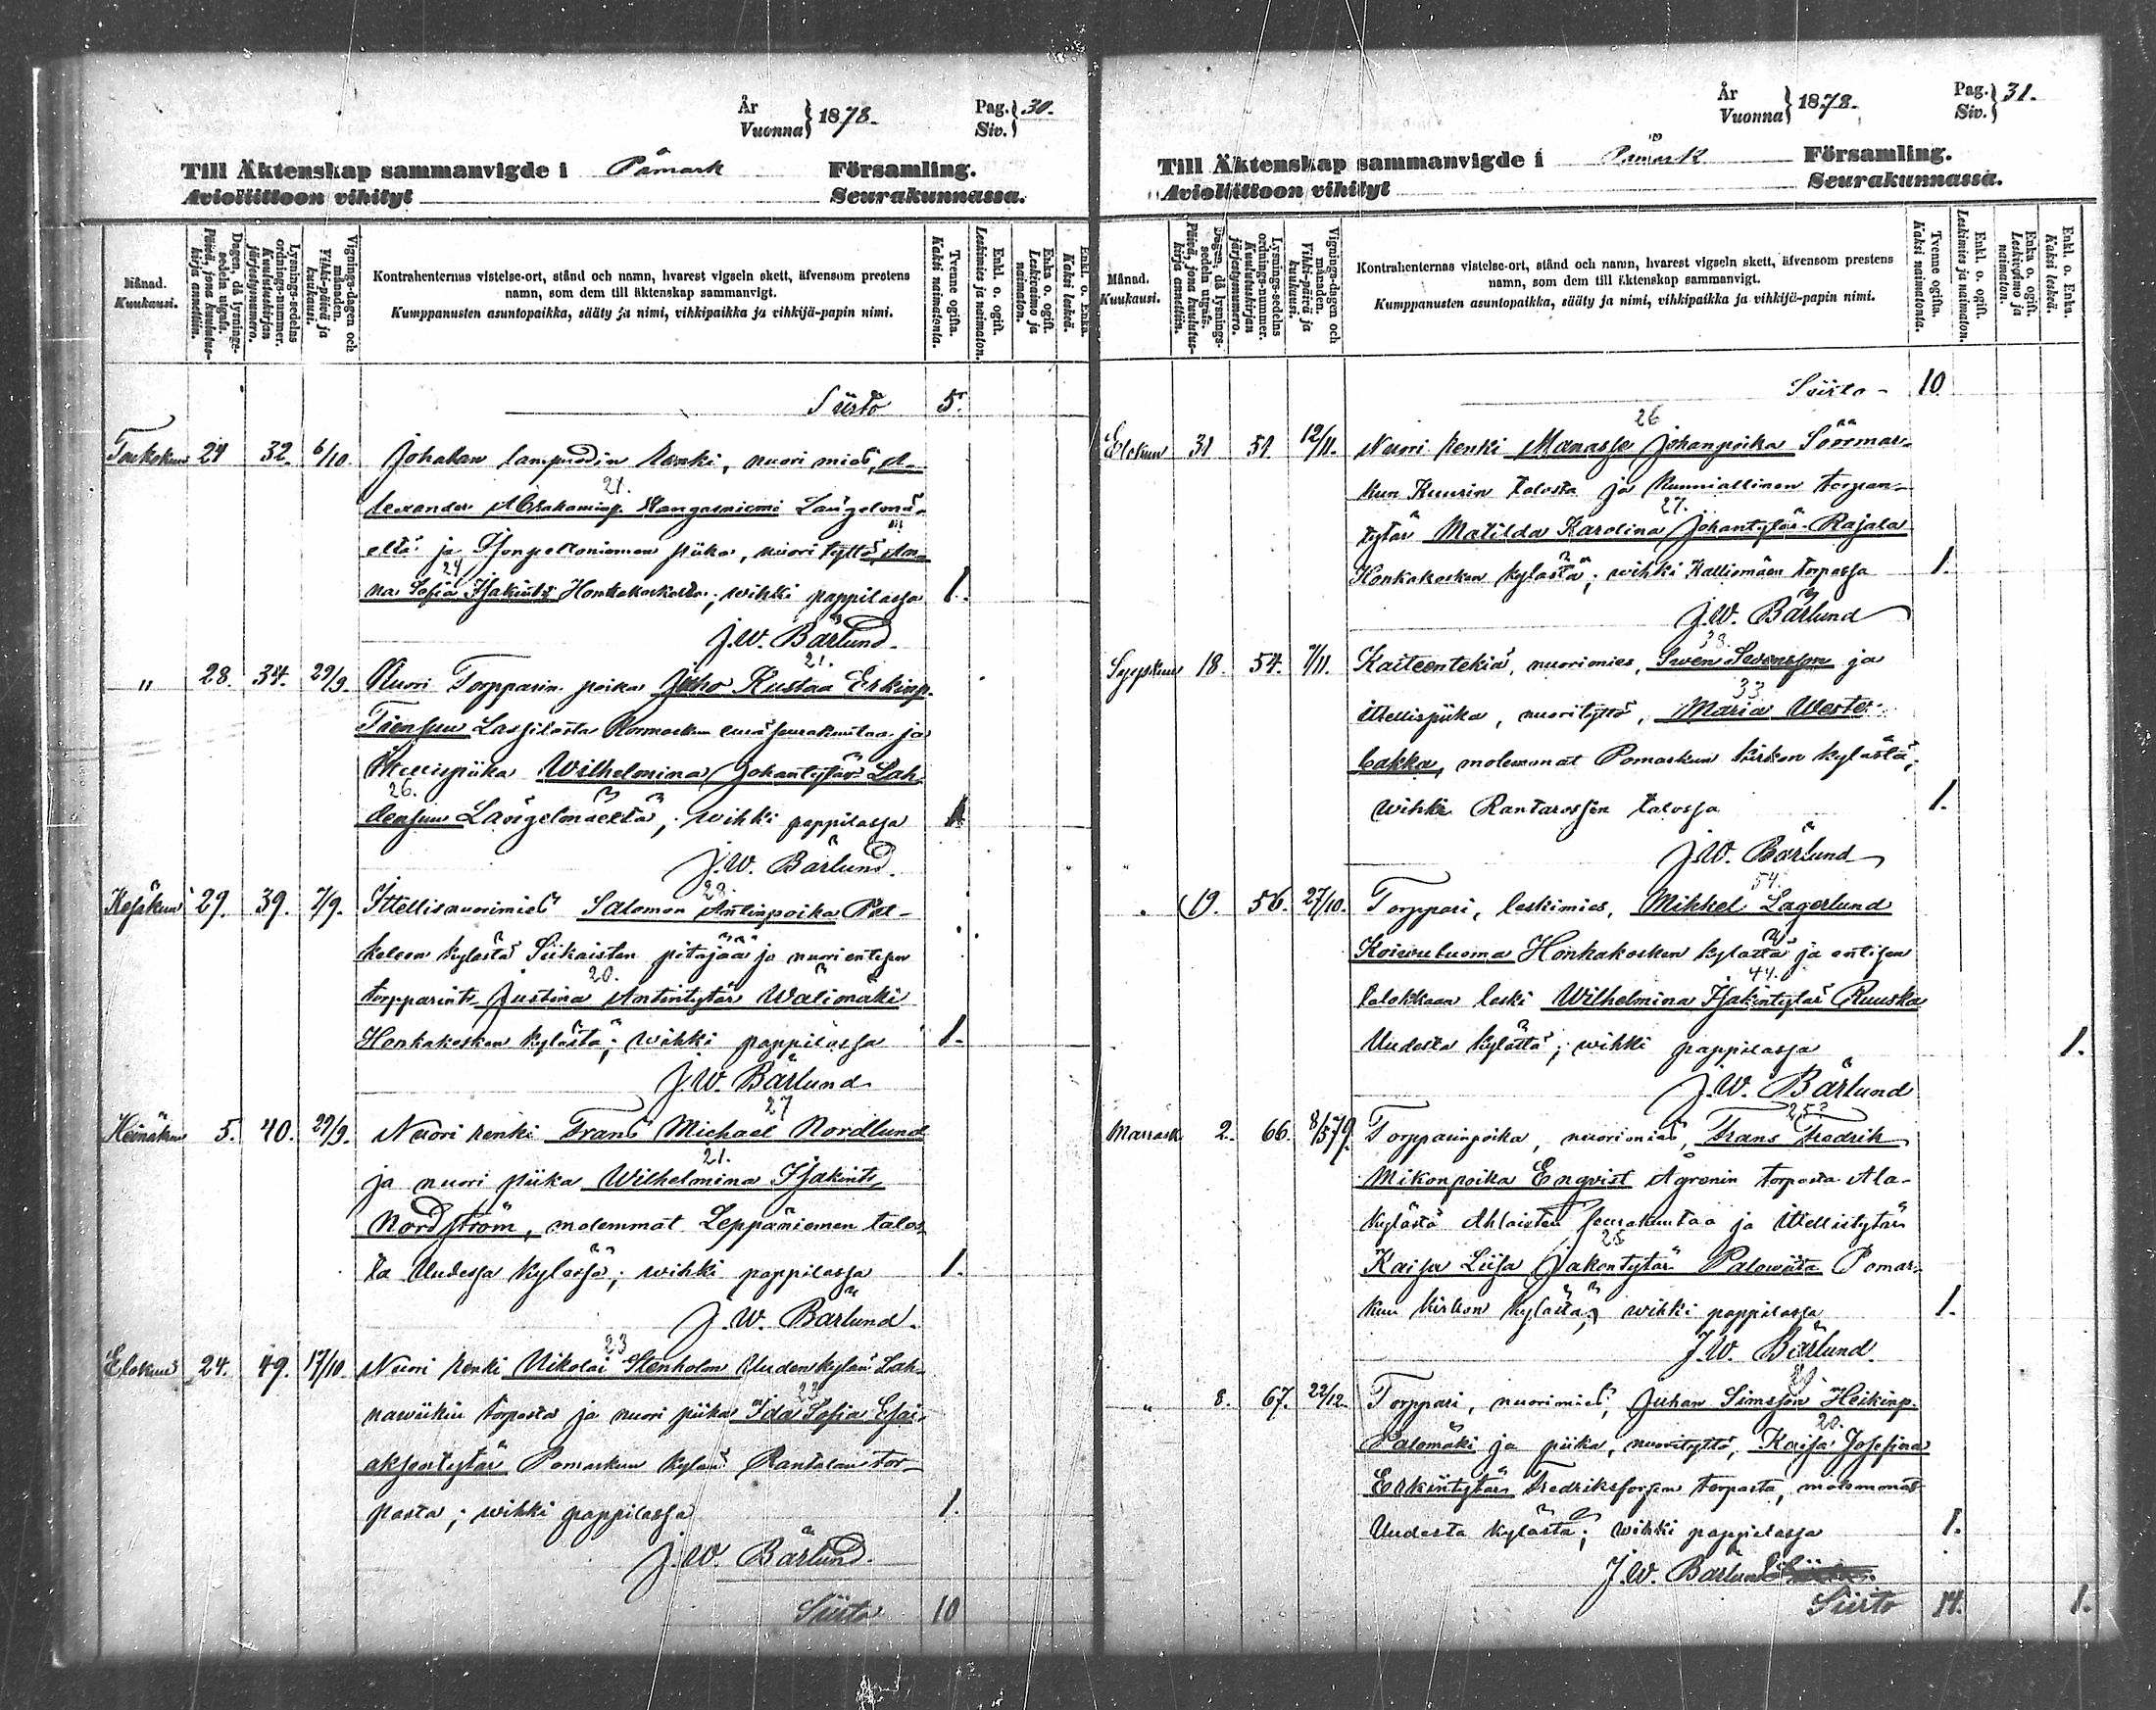 År
Vuonna } 1878.
Pag.
Siv. } 30.
Till Äktenskap sammanvigde i Påmark Församling.
Avioliittoon vihityt Seurakunnassa.
Månad.
Kuukausi.
Dagen, då lysnings-sedeln utgafs.
Päivä, jona kuulutus-kirja annettiin.
Lysnings-sedelns ordnings-nummer.
Kuulutuskirjan järjestysnumero.
Vignings-dagen och månaden.
Vihki-päivä ja kuukausi.
Kontrahenternas vistelse-ort, stånd och namn, hvarest vigseln skett, äfvensom prestens
namn, som dem till äktenskap sammanvigt.
Kumppanusten asuntopaikka, sääty ja nimi, vihkipaikka ja vihkijä-papin nimi.
Tvenne ogifta.
Kaksi naimatonta.
Enkl. o. ogift.
Leskimies ja naimaton.
Enka o. ogift.
Leskivaimo ja naimaton.
Enkl. o. Enka.
Kaksi leskeä.
Siirto 5.
Toukokuu 24 32. 6/10. Johalan lampuodin renki, nuori mies, A-
21.
lexander Abrahaminp. Kangasniemi Längelmä-
eltä ja Isonpeltoniemen piika, nuori tyttö, An-
24
na Sofia Isakint. Honkakoskelta; wihki pappilassa 1.
J. W. Bärlund.
21.
" 28. 34. 29/9. Nuori Torpparin poika Juho Kustaa Erkinp.
Lassilasta Normarkun emäseurakuntaa ja
Ittellispiika Wilhelmina Johantytär Lah-
26.
densuu Längelmäeltä; wihki pappilassa 1
J. W. Bärlund.
29.
Kesäkuu 29. 39. 7/9. Ittellisnuorimies Salomon Antinpoika
kylästä Siikaisten pitäjää ja nuori entisen
20.
torpparint. Justina Antintytär Walimäki
Honkakosken kylästä; wihki pappilassa 1.
J. W. Bärlund
27
Heinäkuu 5. 40. 29/9. Nuori renki Frans Michael Nordlund
21.
ja nuori piika Wilhelmina Isakint.
Nordström, molemmat Leppäniemen talos-
ta Uudessa kylässä; wihki pappilassa 1.
J. W. Bärlund.
23
Elokuu 24. 49. 17/10. Nuori renki Nikolai Stenholm Uudenkylän Lah-
23
nawiikin torposta ja nuori piika Ida Sofia Esai-
aksentytär Pomarkun kylän Rantalan tor-
pasta; wihki pappilassa 1.
J. W. Bärlund.
Siirto 10
År
Vuonna } 1878.
Pag.
Siv. } 31.
Till Äktenskap sammanvigde i Påmark Församling.
Avioliittoon vihityt Seurakunnassa.
Månad.
Kuukausi.
Dagen, då lysnings-sedeln utgafs.
Päivä, jona kuulutus-kirja annettiin.
Lysnings-sedelns ordnings-nummer.
Kuulutuskirjan järjestysnumero.
Vignings-dagen och månaden.
Vihki-päivä ja kuukausi.
Kontrahenternas vistelse-ort, stånd och namn, hvarest vigseln skett, äfvensom prestens
namn, som dem till äktenskap sammanvigt.
Kumppanusten asuntopaikka, sääty ja nimi, vihkipaikka ja vihkijä-papin nimi.
Tvenne ogifta.
Kaksi naimatonta.
Enkl. o. ogift.
Leskimies ja naimaton.
Enka o. ogift.
Leskivaimo ja naimaton.
Enkl. o. Enka.
Kaksi leskeä.
Siirto - 10
26
Elokuu 31 51 12/11. Nuori renki Manasse Johanpoika Söörmar-
kun Kuurin talosta ja kunniallinen torpan-
27.
tytär Matilda Karolina Johantytär Rajala
Honkakosken kylästä; wihki Kalliomäen torpassa 1.
J. W. Bärlund
38.
Syyskuu 18. 54. 7/11. nuorimies, Swen Swensson ja
33.
ittellispiika, nuorityttö, Maria Weste-
backa, molemmat Pomarkun kirkon kylästä;
wihki Rantarossin talossa 1.
J. W. Bärlund
54.
" 19. 56. 27/10. Torppari, leskimies, Mikkel Lagerlund
Koiwuluoma Honkakosken kylästä ja entisen
44.
talokkaan leski Wilhelmina Isakintytär Ruuska
Uudesta kylästä; wihki pappilassa 1.
J. W. Bärlund
25?
Marrask. 2. 66. 8/5 79. Torpparinpoika, nuorimies, Frans Fredrik
Mikonpoika Enqvist Agrenin torposta Ala-
kylästä Ahlaisten seurakuntaa ja Ittellistytär
25
Kaisa Liisa Jakontytär Palowiita Pomar-
kun kirkon kylästä; wihki pappilassa 1.
J. W. Bärlund.
" 8. 67. 22/12. Torppari, nuorimies, Juhan Simsson Heikinp.
20.
Palomäki ja piika, nuorityttö, Kaisa Josefina
Erkintytär Fredriksforsin torpasta, molemmat
Uudesta kylästä; wihki pappilassa 1.
J. W. Bärlund
Siirto 14. 1.